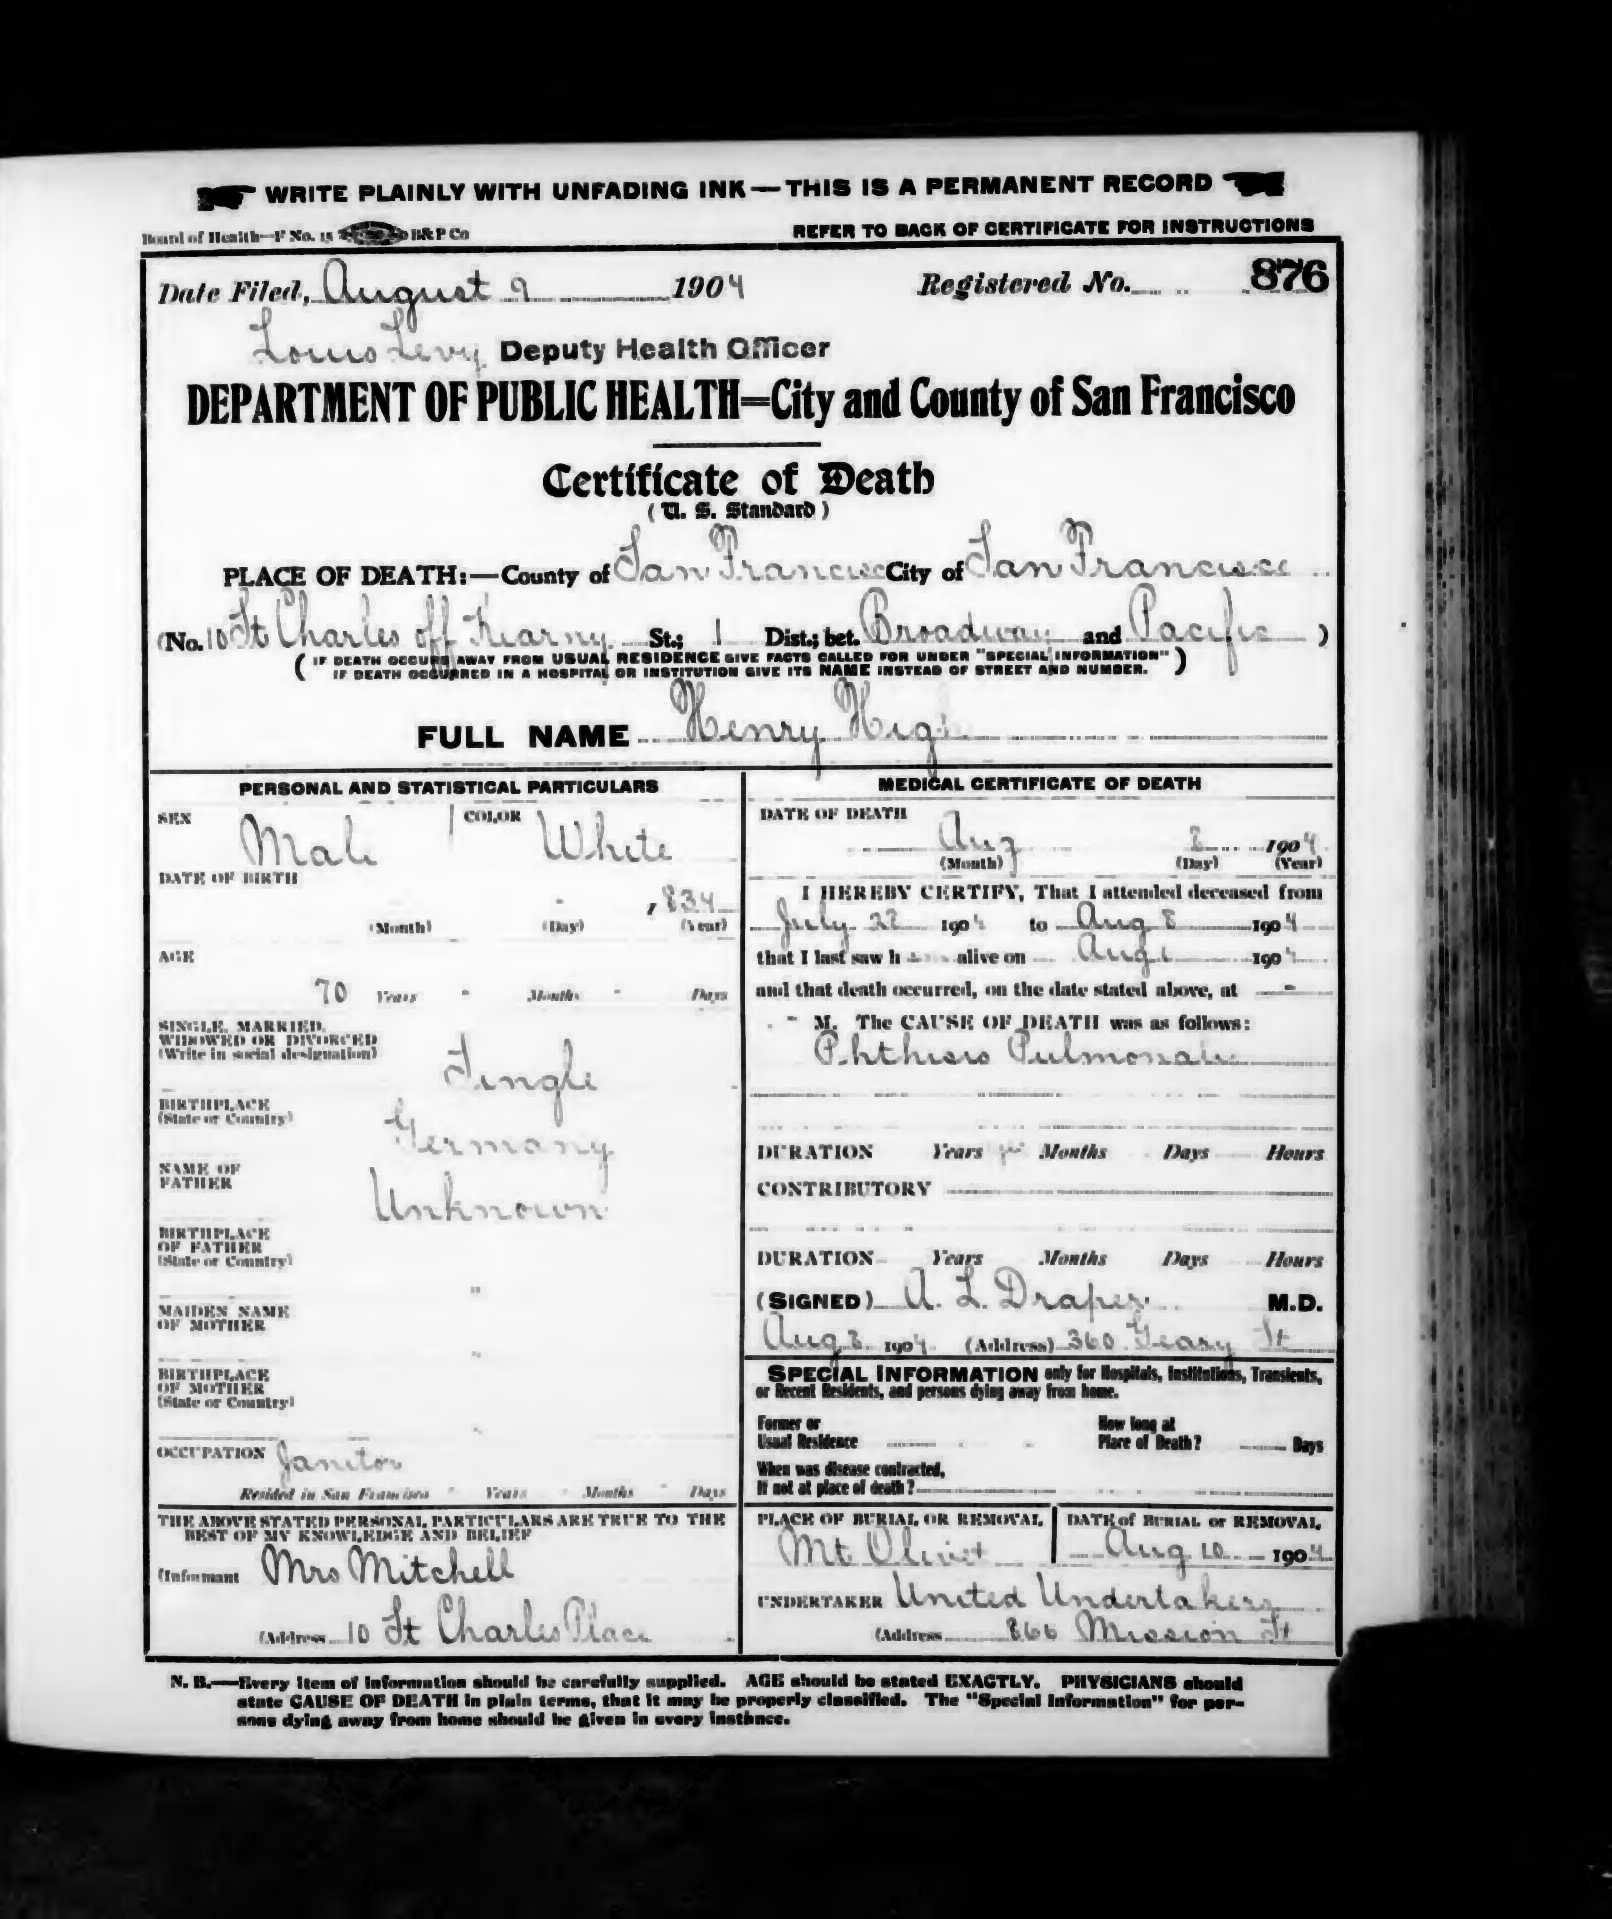 WRITE PLAINLY WITH UNFADING INK—THIS IS A PERMANENT RECORD
Board of Health—F No. 15 B&P Co REFER TO BACK OF CERTIFICATE FOR INSTRUCTIONS
Date Filed, August 9 1904 Registered No. 876
Louis Levy Deputy Health Officer
DEPARTMENT OF PUBLIC HEALTH=City and County of San Francisco
Certificate of Death
(U. S. Standard)
PLACE OF DEATH:—County of San Francisco City of San Francisco
(No. 10 St Charles off Kearny St.; 1 Dist.; bet. Broadway and Pacific )
(IF DEATH OCCURS AWAY FROM USUAL RESIDENCE GIVE FACTS CALLED FOR UNDER "SPECIAL INFORMATION"
IF DEATH OCCURRED IN A HOSPITAL OR INSTITUTION GIVE ITS NAME INSTEAD OF STREET AND NUMBER.)
FULL NAME Henry
PERSONAL AND STATISTICAL PARTICULARS
SEX Male COLOR White
DATE OF BIRTH
1834
(Month) (Day) (Year)
AGE
70 Years - Months - Days
SINGLE, MARRIED,
WIDOWED OR DIVORCED
(Write in social designation) Single
BIRTHPLACE
(State or Country) Germany
NAME OF
FATHER Unknown
BIRTHPLACE
OF FATHER
(State or Country)
"
MAIDEN NAME
OF MOTHER
"
BIRTHPLACE
OF MOTHER
(State or Country)
"
OCCUPATION Janitor
Resided in San Francisco - Years - Months - Days
THE ABOVE STATED PERSONAL PARTICULARS ARE TRUE TO THE
BEST OF MY KNOWLEDGE AND BELIEF
(Informant Mrs Mitchell
(Address 10 St Charles Place
MEDICAL CERTIFICATE OF DEATH
DATE OF DEATH
Aug 8 1904
(Month) (Day) (Year)
I HEREBY CERTIFY, That I attended deceased from
July 22 1904 to Aug 8 1904
that I last saw h alive on Aug 1904
and that death occurred, on the date stated above, at -
- M. The CAUSE OF DEATH was as follows:
Phthisis Pulmonalis
DURATION Years Months Days Hours
CONTRIBUTORY
DURATION Years Months Days Hours
(SIGNED) A. L. Draper M.D.
Aug 8 1904 (Address) 360 Geary St
SPECIAL INFORMATION only for Hospitals, Institutions, Transients,
or Recent Residents, and persons dying away from home.
Former or
Usual Residence
How long at
Place of Death? Days
When was disease contracted,
If not at place of death?
PLACE OF BURIAL OR REMOVAL
Mt Olivet
DATE of BURIAL or REMOVAL
Aug 10 1904
UNDERTAKER United Undertakers
(Address 866 Mission St
N. B.—Every item of information should be carefully supplied. AGE should be stated EXACTLY. PHYSICIANS should
state CAUSE OF DEATH in plain terms, that it may be properly classified. The "Special Information" for per-
sons dying away from home should be given in every instance.